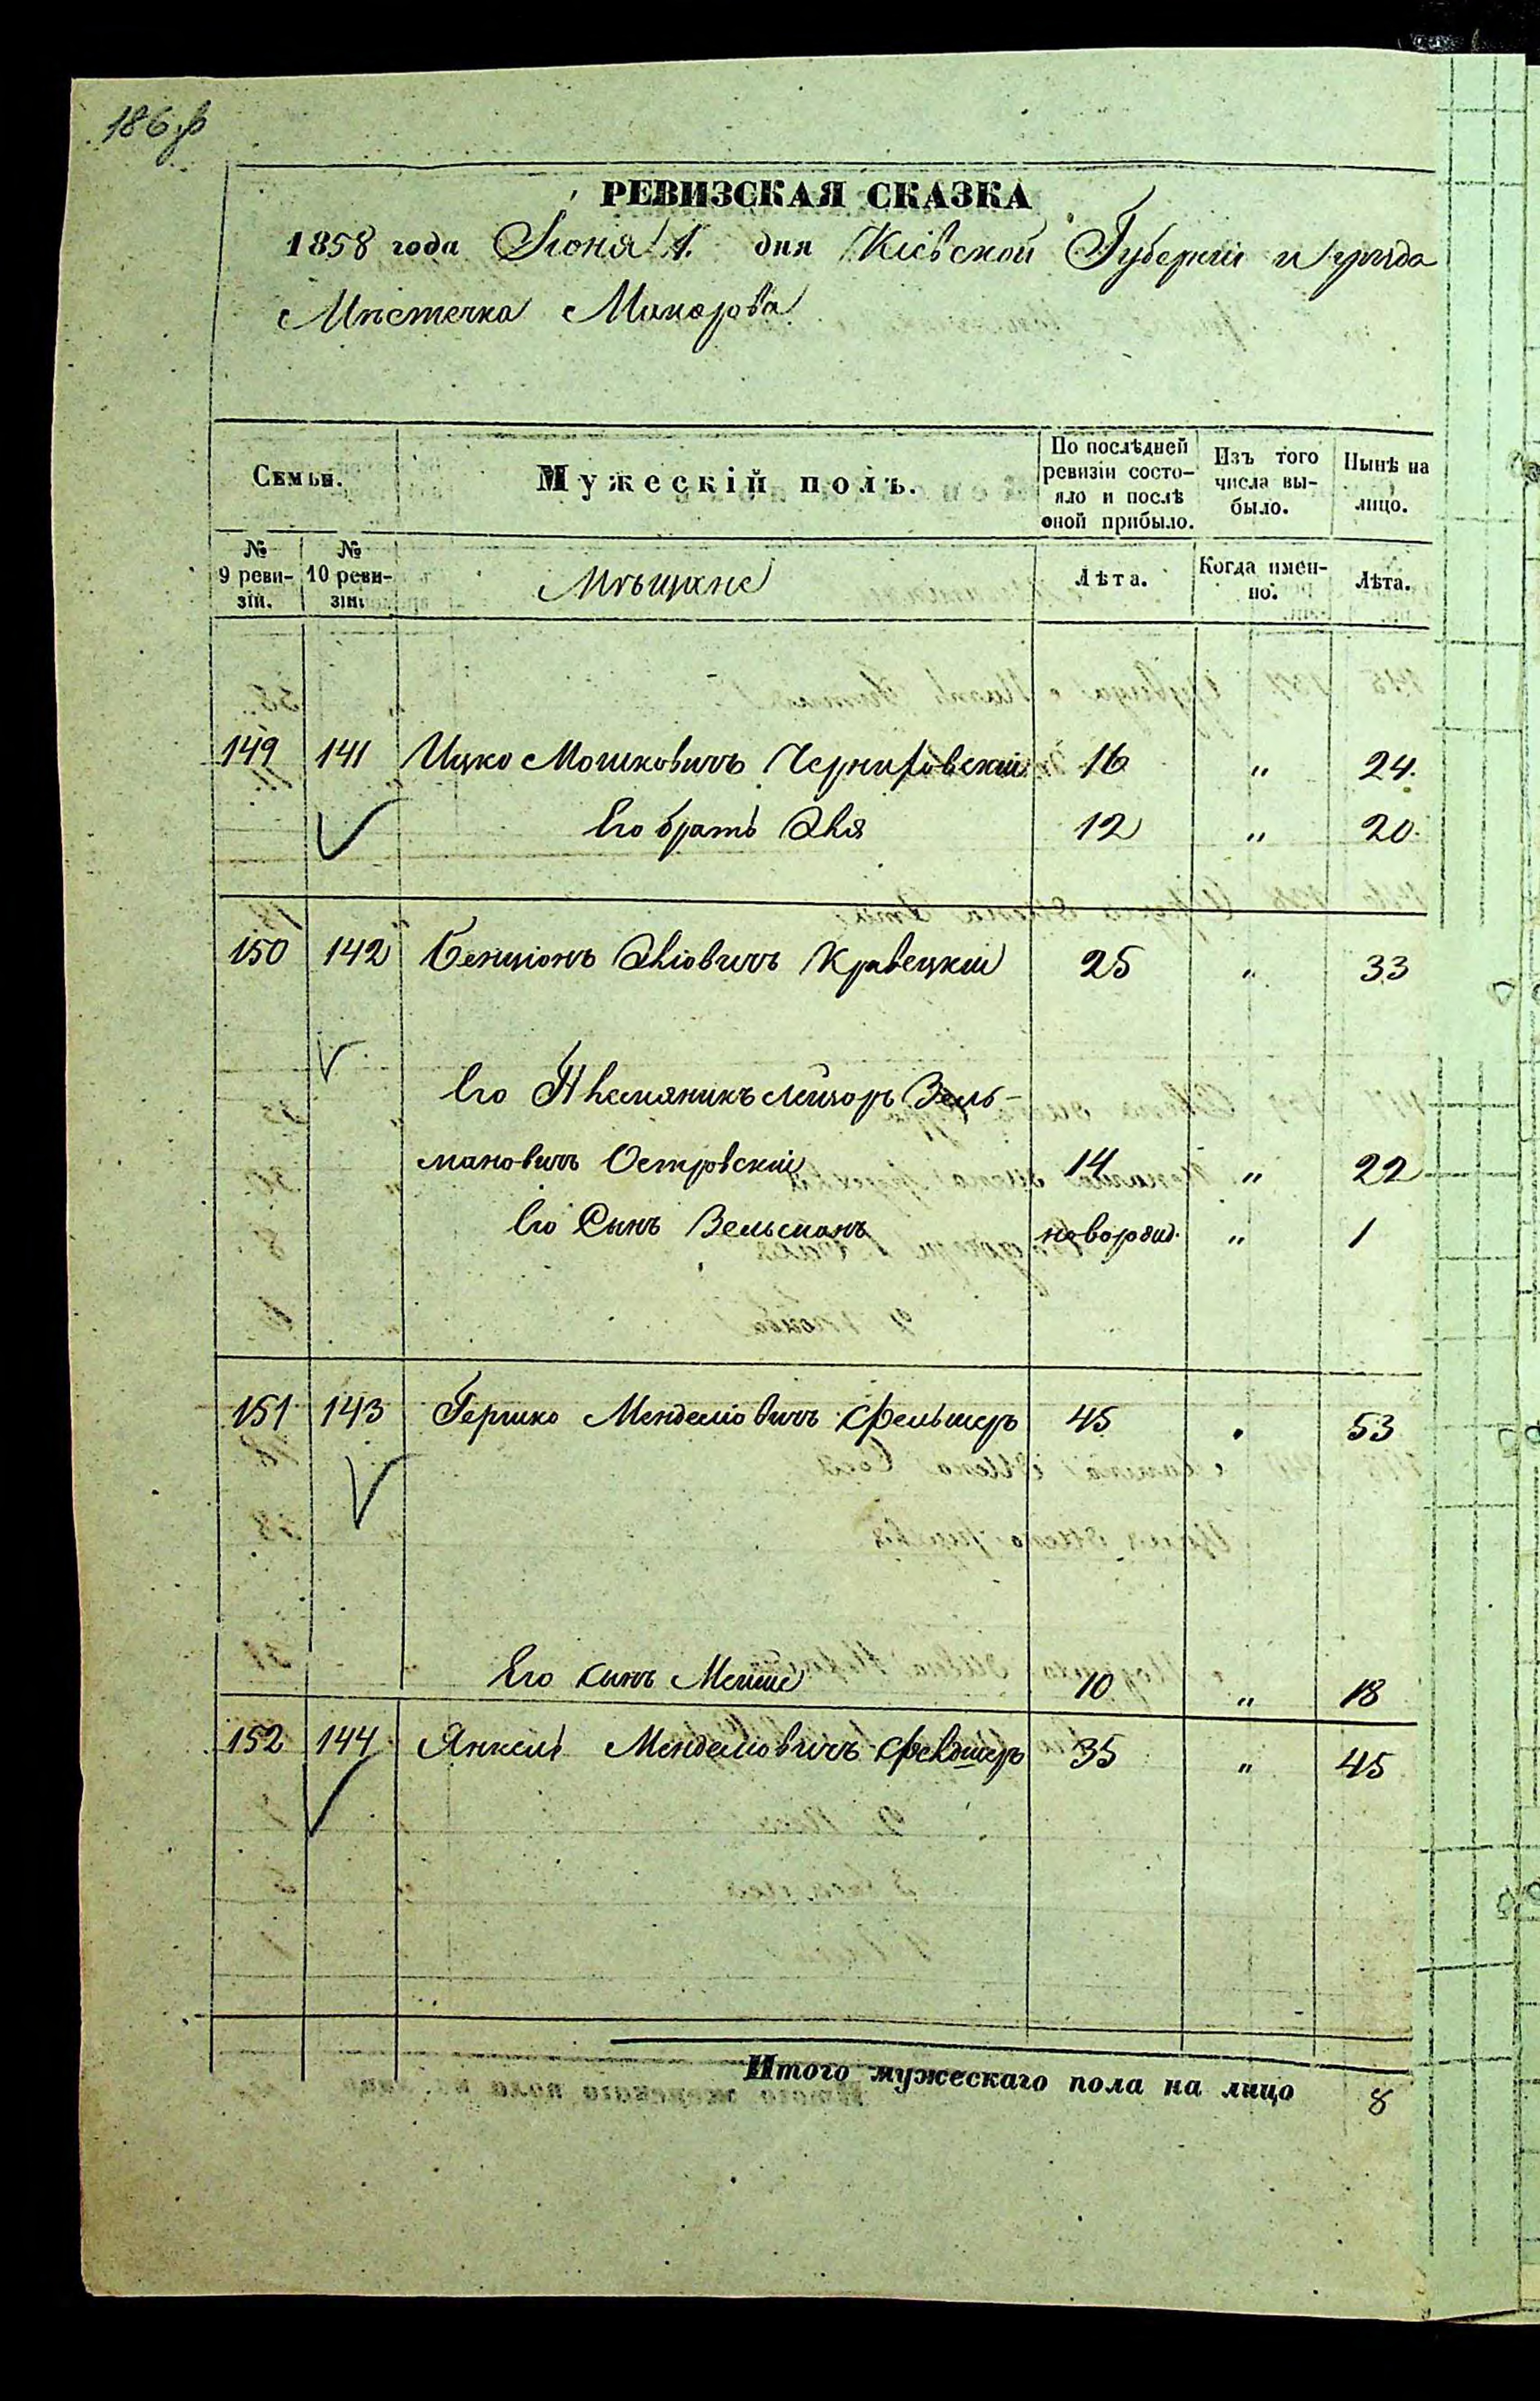 РЕВИЗСКАЯ СКАЗКА
1858 года Іюня 1. дня Кіевской Губерніи и уѣзда
Мѣстечка Макарова
Семьи. Мужескій полъ. По послѣдней ревизіи состояло и послѣ оной прибыло. Изъ того числа выбыло. Нынѣ на лицо.
№ 9 ревизіи. № 10 ревизіи. Мѣщане Лѣта. Когда именно. Лѣта.
149 141 Ицко Мошковичъ Черниховскій 16 " 24.
Его братъ 12 " 20.
150 142 Бенціонъ Кравецкій 25 " 33
Его Племяникъ Лейзоръ Зель-
мановичъ Островскій 14 " 22
Его Сынъ Зельманъ новорожд. " 1
151 143 Гершко Менделіовичъ Фельшеръ 45 " 53
Его сынъ 10 " 18
152 144 Янкель Менделіовичъ 35 " 45
Итого мужескаго пола на лицо 8